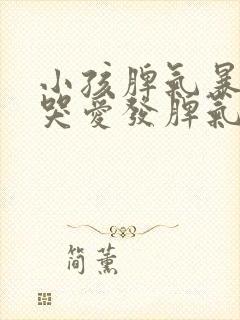 小孩脾氣暴
哭愛發脾氣
简薰